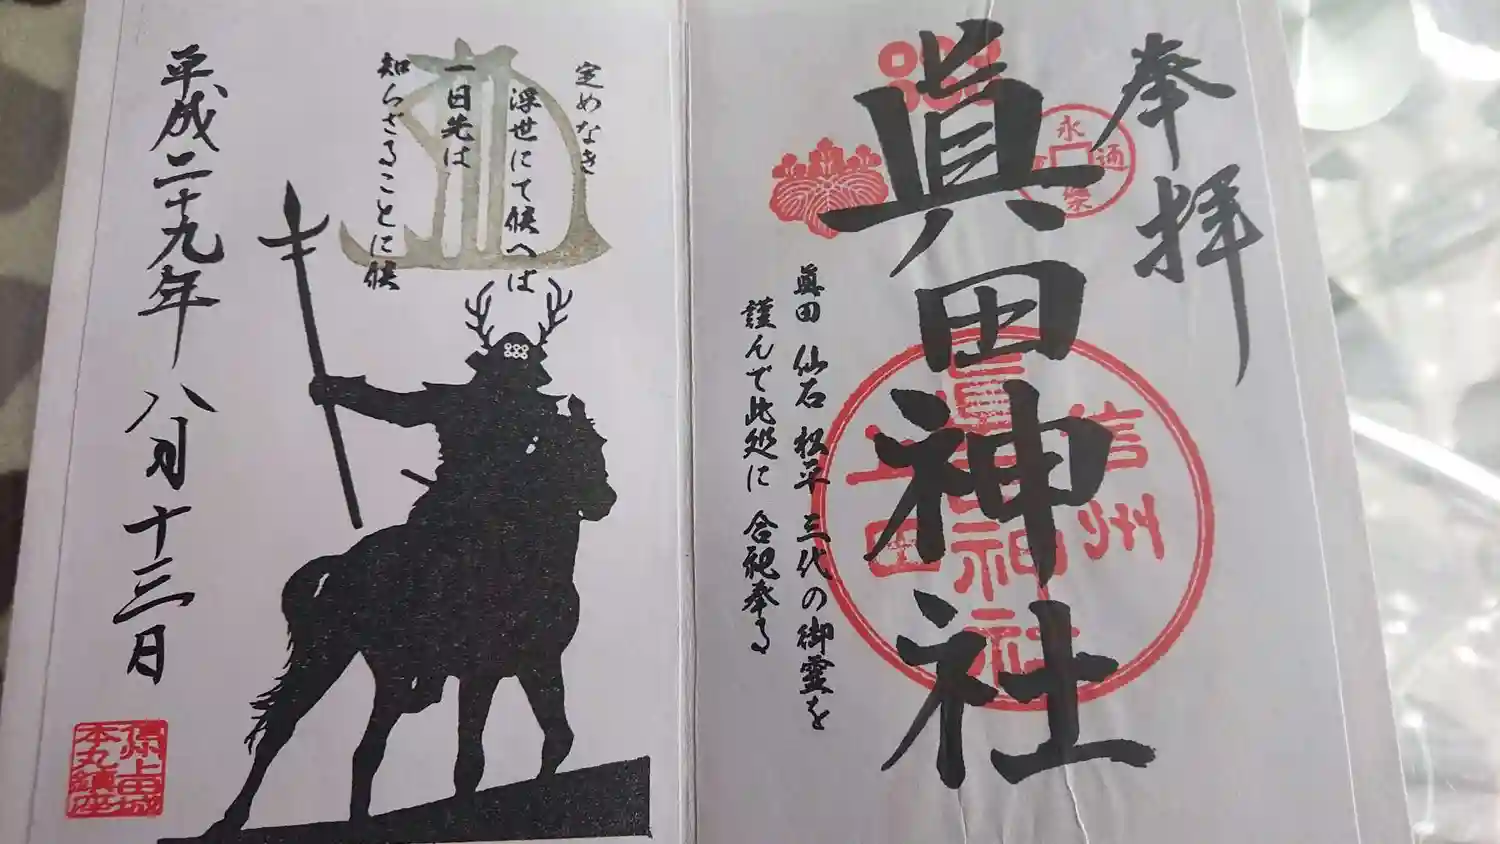 奉拝
眞田神社
信州
上田
眞田神社
眞田 仙石 松平 三代の御霊を
謹んで此処に 合祀奉る
定めなき
浮世にて候へば
一日先は
知らざることに候
平成二十九年 八月十三日
上田城
本丸鎮座